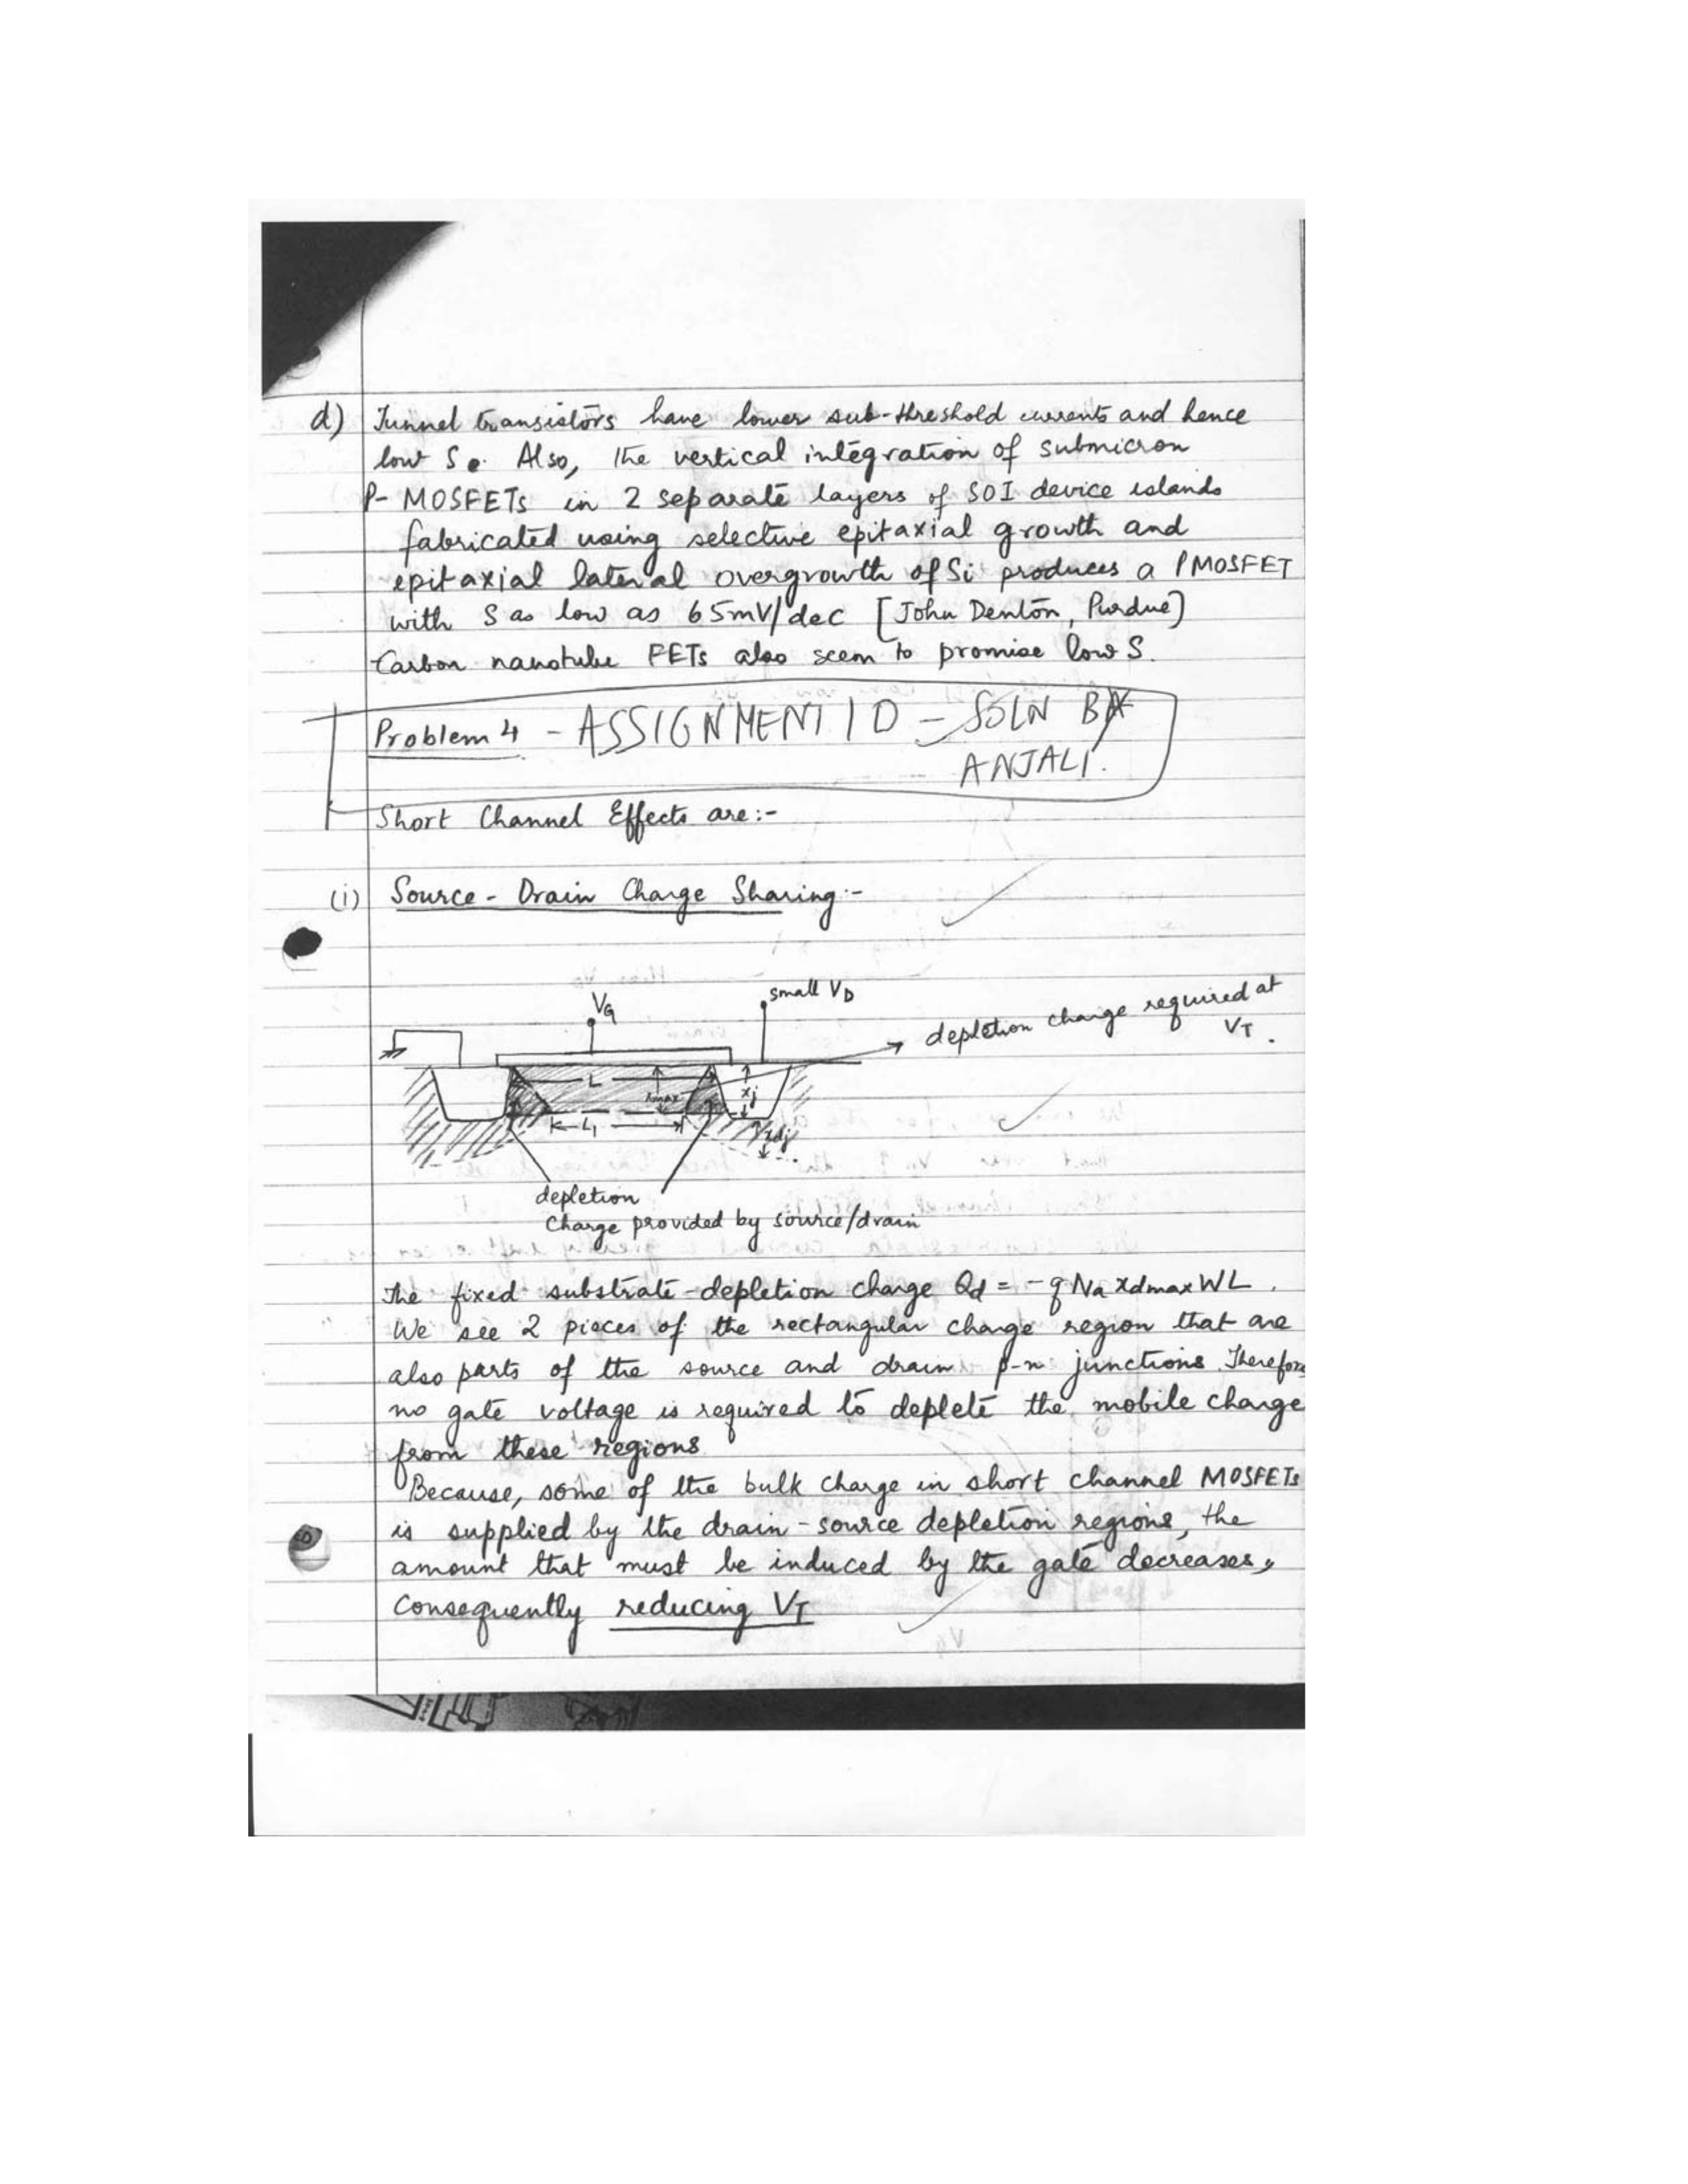 d) Tunnel transistors have lower sub-threshold currents and hence
low S. Also, the vertical integration of submicron
P-MOSFETs in 2 separate layers of SOI device islands
fabricated using selective epitaxial growth and
epitaxial lateral overgrowth of Si produces a PMOSFET
with S as low as 65mV/dec [John Denton, Purdue]
Carbon nanotube FETs also seem to promise low S.
Problem 4 - ASSIGNMENT 10 - SOLN BY
ANJALI.
Short Channel Effects are:-
(i) Source - Drain Charge Sharing:-
VG
small VD
depletion charge required at
VT.
L
xdmax
xj
L1
xdj
depletion
Charge provided by source/drain
The fixed substrate-depletion charge Qd = -qNa xdmax WL.
We see 2 pieces of the rectangular charge region that are
also parts of the source and drain p-n junctions. Therefore
no gate voltage is required to deplete the mobile charge
from these regions
Because, some of the bulk charge in short channel MOSFETs
is supplied by the drain-source depletion regions, the
amount that must be induced by the gate decreases,
consequently reducing VT